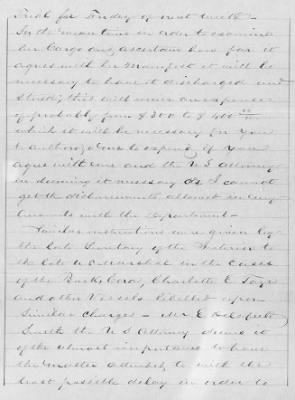 Trial for Friday of next week -
In the mean time in order to examine
her Cargo and ascertain how far it
agrees with her Manifest it will be
necessary to have it discharged and
Stored; this will incur an expense
of probably from $300 to $400 00/
which it will be necessary for you
to authorize me to expend if you
agree with me and the U S Attorney
in deeming it necessary as I cannot
get the disbursements allowed in my
Accounts with the Department -
Similar instructions were given by
the late Secretary of the Interior to
the late U S Marshal in the cases
of the Bark Cora, Charlotte E Tay
and other Vessels libelled upon
Similar charges - Mr E Delafield
Smith the U S Attorney deems it
of the utmost importance to have
the matter attended to with the
least possible delay in order to